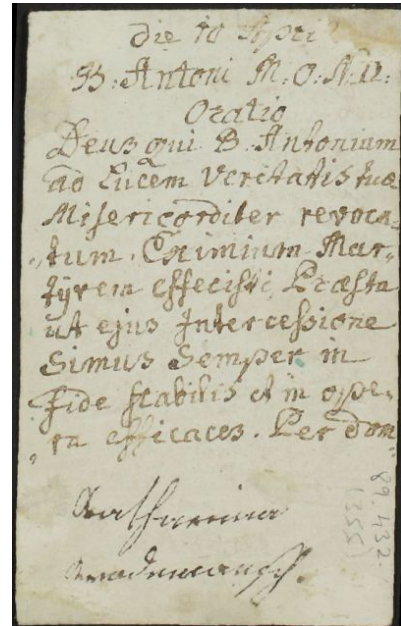 Die 10 April
B: Antoni M: O: N: D:
Oratio
Deus qui B. Antonium
ad Lucem Veritatis tuæ
Misericorditer revoca-
„tum. Eximium Mar„
tÿrem effecisti, Præsta
ut ejus Intercessione
Simus Semper in
Fide stabilis et in ope„
„ra efficaces. Per dom„
Catharina
89.432.
(355)